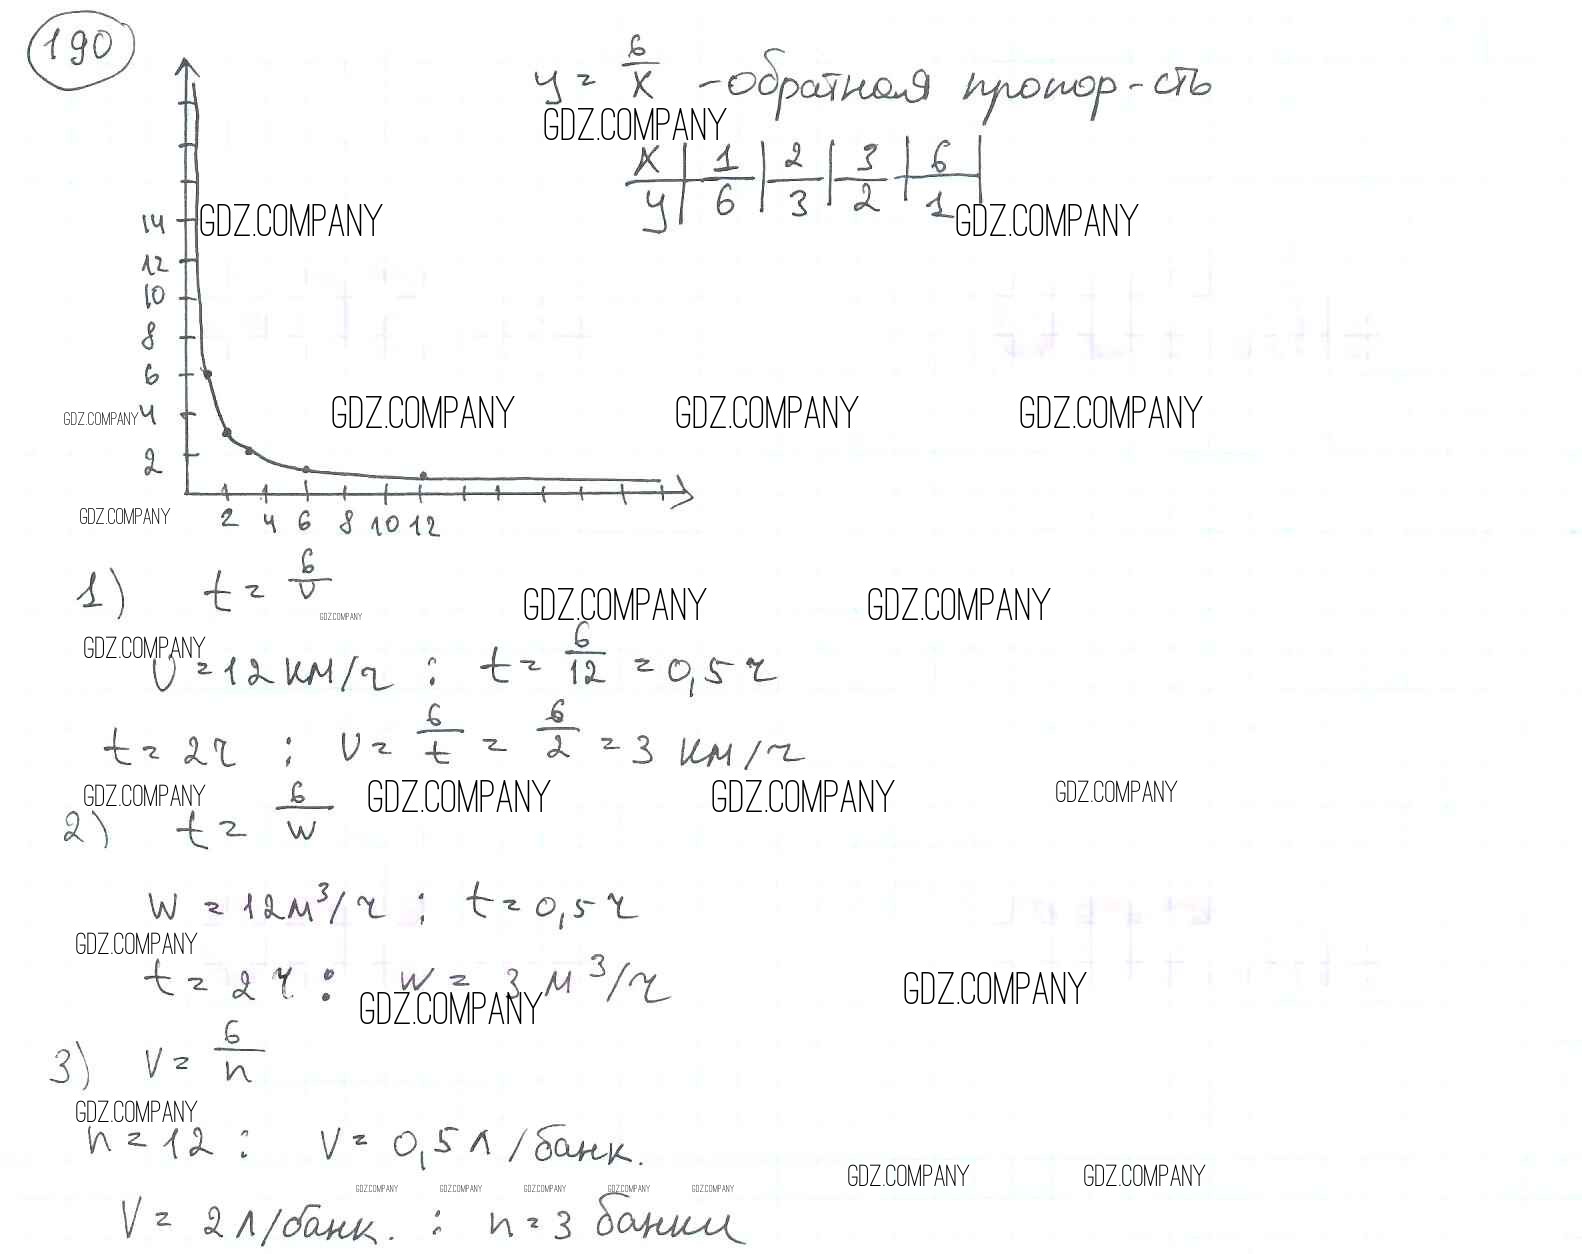 190
y = 6/x - обратная пропор-сть
GDZ.COMPANY
x | 1 | 2 | 3 | 6 |
y | 6 | 3 | 2 | 1
14 GDZ.COMPANY GDZ.COMPANY
12
10
8
6
GDZ.COMPANY 4 GDZ.COMPANY GDZ.COMPANY GDZ.COMPANY
2
GDZ.COMPANY 2 4 6 8 10 12
1) t = 6/v
GDZ.COMPANY GDZ.COMPANY GDZ.COMPANY
GDZ.COMPANY
v = 12 км/ч : t = 6/12 = 0,5 ч
t = 2ч ; v = 6/t = 6/2 = 3 км/ч
GDZ.COMPANY GDZ.COMPANY GDZ.COMPANY GDZ.COMPANY
2) t = 6/w
w = 12м³/ч ; t = 0,5 ч
GDZ.COMPANY
t = 2 ч : w = 3 м³/ч
GDZ.COMPANY GDZ.COMPANY
3) V = 6/n
GDZ.COMPANY
n = 12 : V = 0,5 л/банк.
GDZ.COMPANY GDZ.COMPANY
GDZ.COMPANY GDZ.COMPANY GDZ.COMPANY GDZ.COMPANY GDZ.COMPANY
V = 2 л/банк. : n = 3 банки